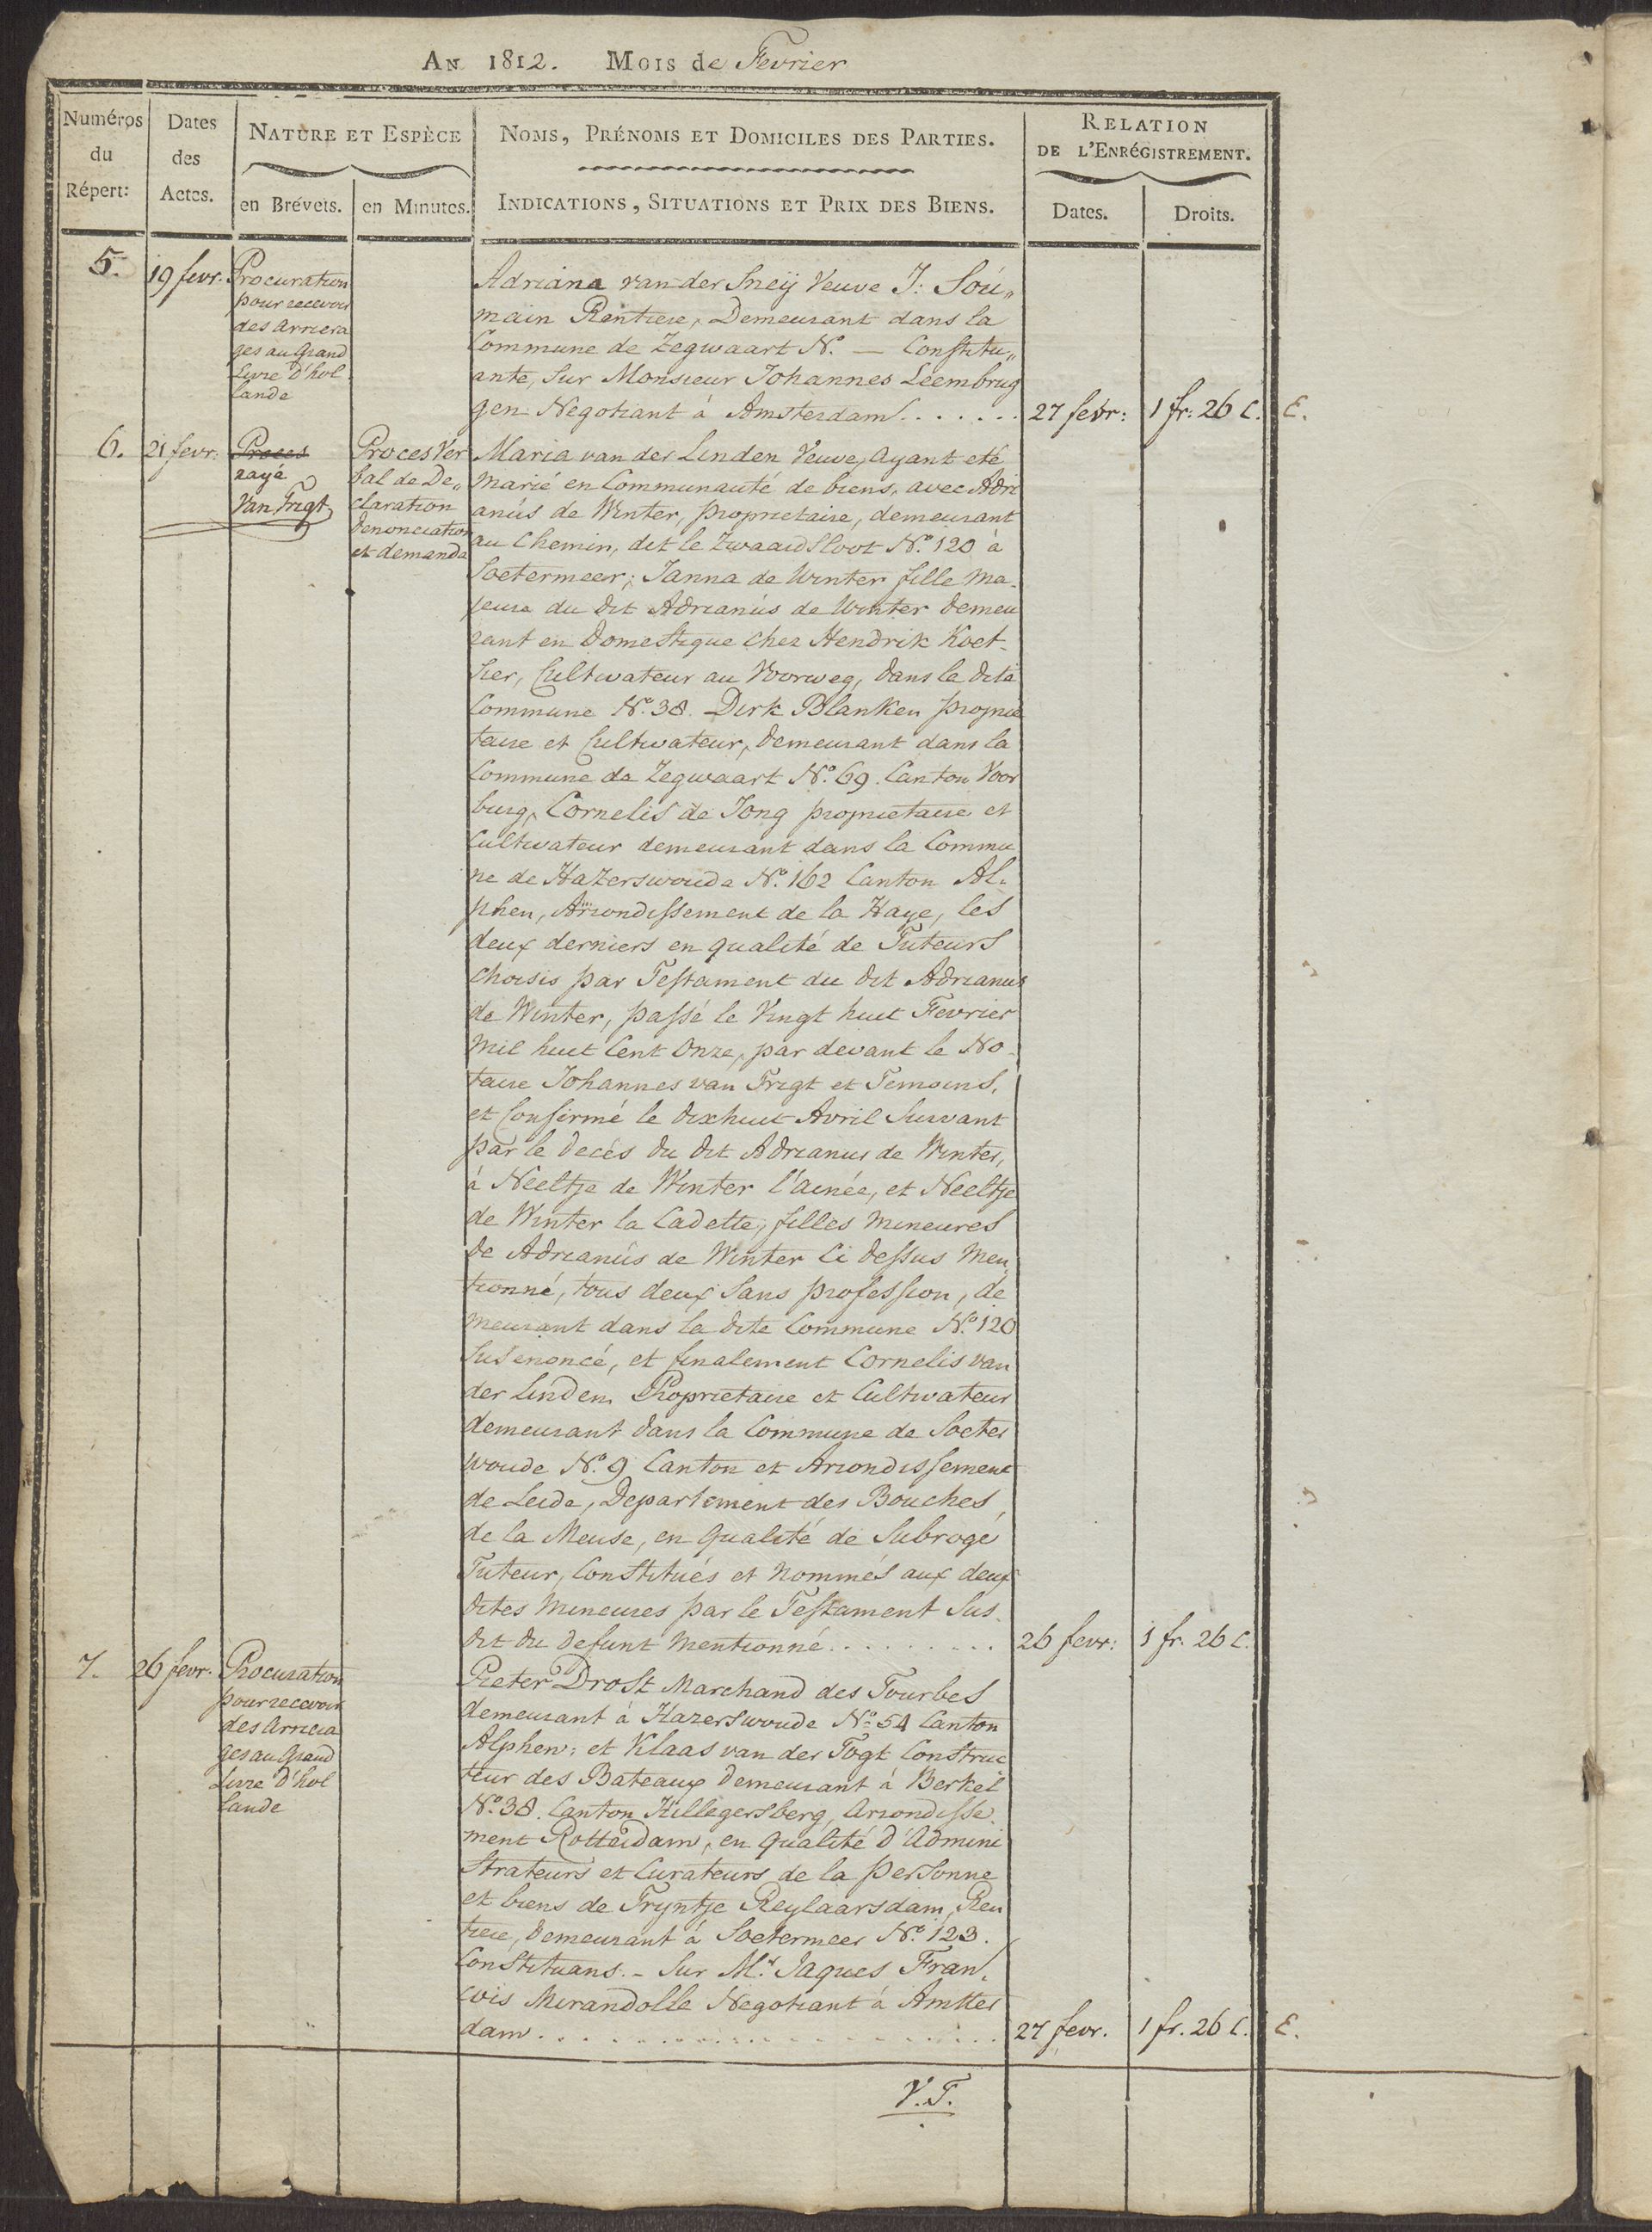 An 1812. Mois de Fevrier
Numéros du Répert:
Dates des Actes.
Nature et Espèce
en Brévets.
en Minutes.
Noms, Prénoms et Domiciles des Parties.
Indications, Situations et Prix des Biens.
Relation de l'Enrégistrement.
Dates.
Droits.
5.
19 fevr.
Procuration
pour recevoir
des arriera
ges au Grand
Livre d'hol
lande
Adriana van der Sneij Veuve J: Soú„
main Rentiere, Demeurant dans la
Commune de Zegwaart N.o — Constitu„
ante, sur Monsieur Johannes Leembrug
gen Negotiant à Amsterdam . . . . . .
27 fevr:
1 fr: 26 C.
E.
6.
21 fevr:
Proces
rayé
Van Trigt
Proces Ver
bal de De„
claration
denonciation
et demande
Maria van der Linden Veuve, ayant eté
marié en Communauté de biens, avec Adri
anús de Winter, proprietaire, demeurant
au Chemin, dit le Zwaardsloot N.o 120 à
Soetermeer; Janna de Winter fille ma-
jeure du dit Adrianús de Winter demeu
rant en Domestique chez Hendrik Koet-
sier, Cultivateur au Voorweg, dans la dite
Commune N.o 38. Dirk Blanken proprie
taire et Cultivateur, demeurant dans la
Commune de Zegwaart N.o 69. Canton Voor
burg, Cornelis de Jong proprietaire et
Cultivateur demeurant dans la Commu
ne de Hazerswoude N.o 162 Canton Al-
phen, Arrondissement de la Haye, les
deux derniers en qualité de Tuteurs
choisis par Testament du dit Adrianus
de Winter, passé le Vingt huit Fevrier
Mil huit Cent Onze, par devant le No-
taire Johannes van Trigt et Temoins,
et Confirmé le dixhuit Avril Suivant
par le decés du dit Adrianus de Winter,
à Neeltje de Winter l'ainée, et Neeltje
de Winter la Cadette, filles mineures
de Adrianús de Winter Ci dessus Men
tionné, tous deux sans profession, de
meurant dans la dite Commune N.o 120
susenoncé, et finalement Cornelis van
der Linden Proprietaire et Cultivateur
demeurant dans la Commune de Soeter
woude N.o 9 Canton et Arrondissement
de Leide, Departement des Bouches
de la Meuse, en qualité de Subrogé
Tuteur, Constitués et nommés aux deux
dites Mineures par le Testament Sus-
dit du defunt mentionné . . . . . . . . .
26 fevr:
1 fr. 26 C.
7.
26 fevr.
Procuration
pour recevoir
des arriera
ges au Grand
Livre d'hol
lande
Pieter Drost Marchand des Tourbes
demeurant à Hazerswoude N.o 54 Canton
Alphen: et Klaas van der Togt Construc
teur des Bateaux demeurant à Berkel
N.o 38. Canton Hillegersberg, Arrondisse-
ment Rotterdam, en qualité d'Admini
strateurs et Curateurs de la Personne
et biens de Tryntje Reylaarsdam, Ren
tiere, demeurant à Soetermeer N.o 123.
Constituans. - Sur M.r Jaques Fran-
cois Mirandolle Negotiant à Amster
dam . . . . . . . . . . . . . . . . .
27 fevr.
1 fr. 26 C.
E.
V.T.